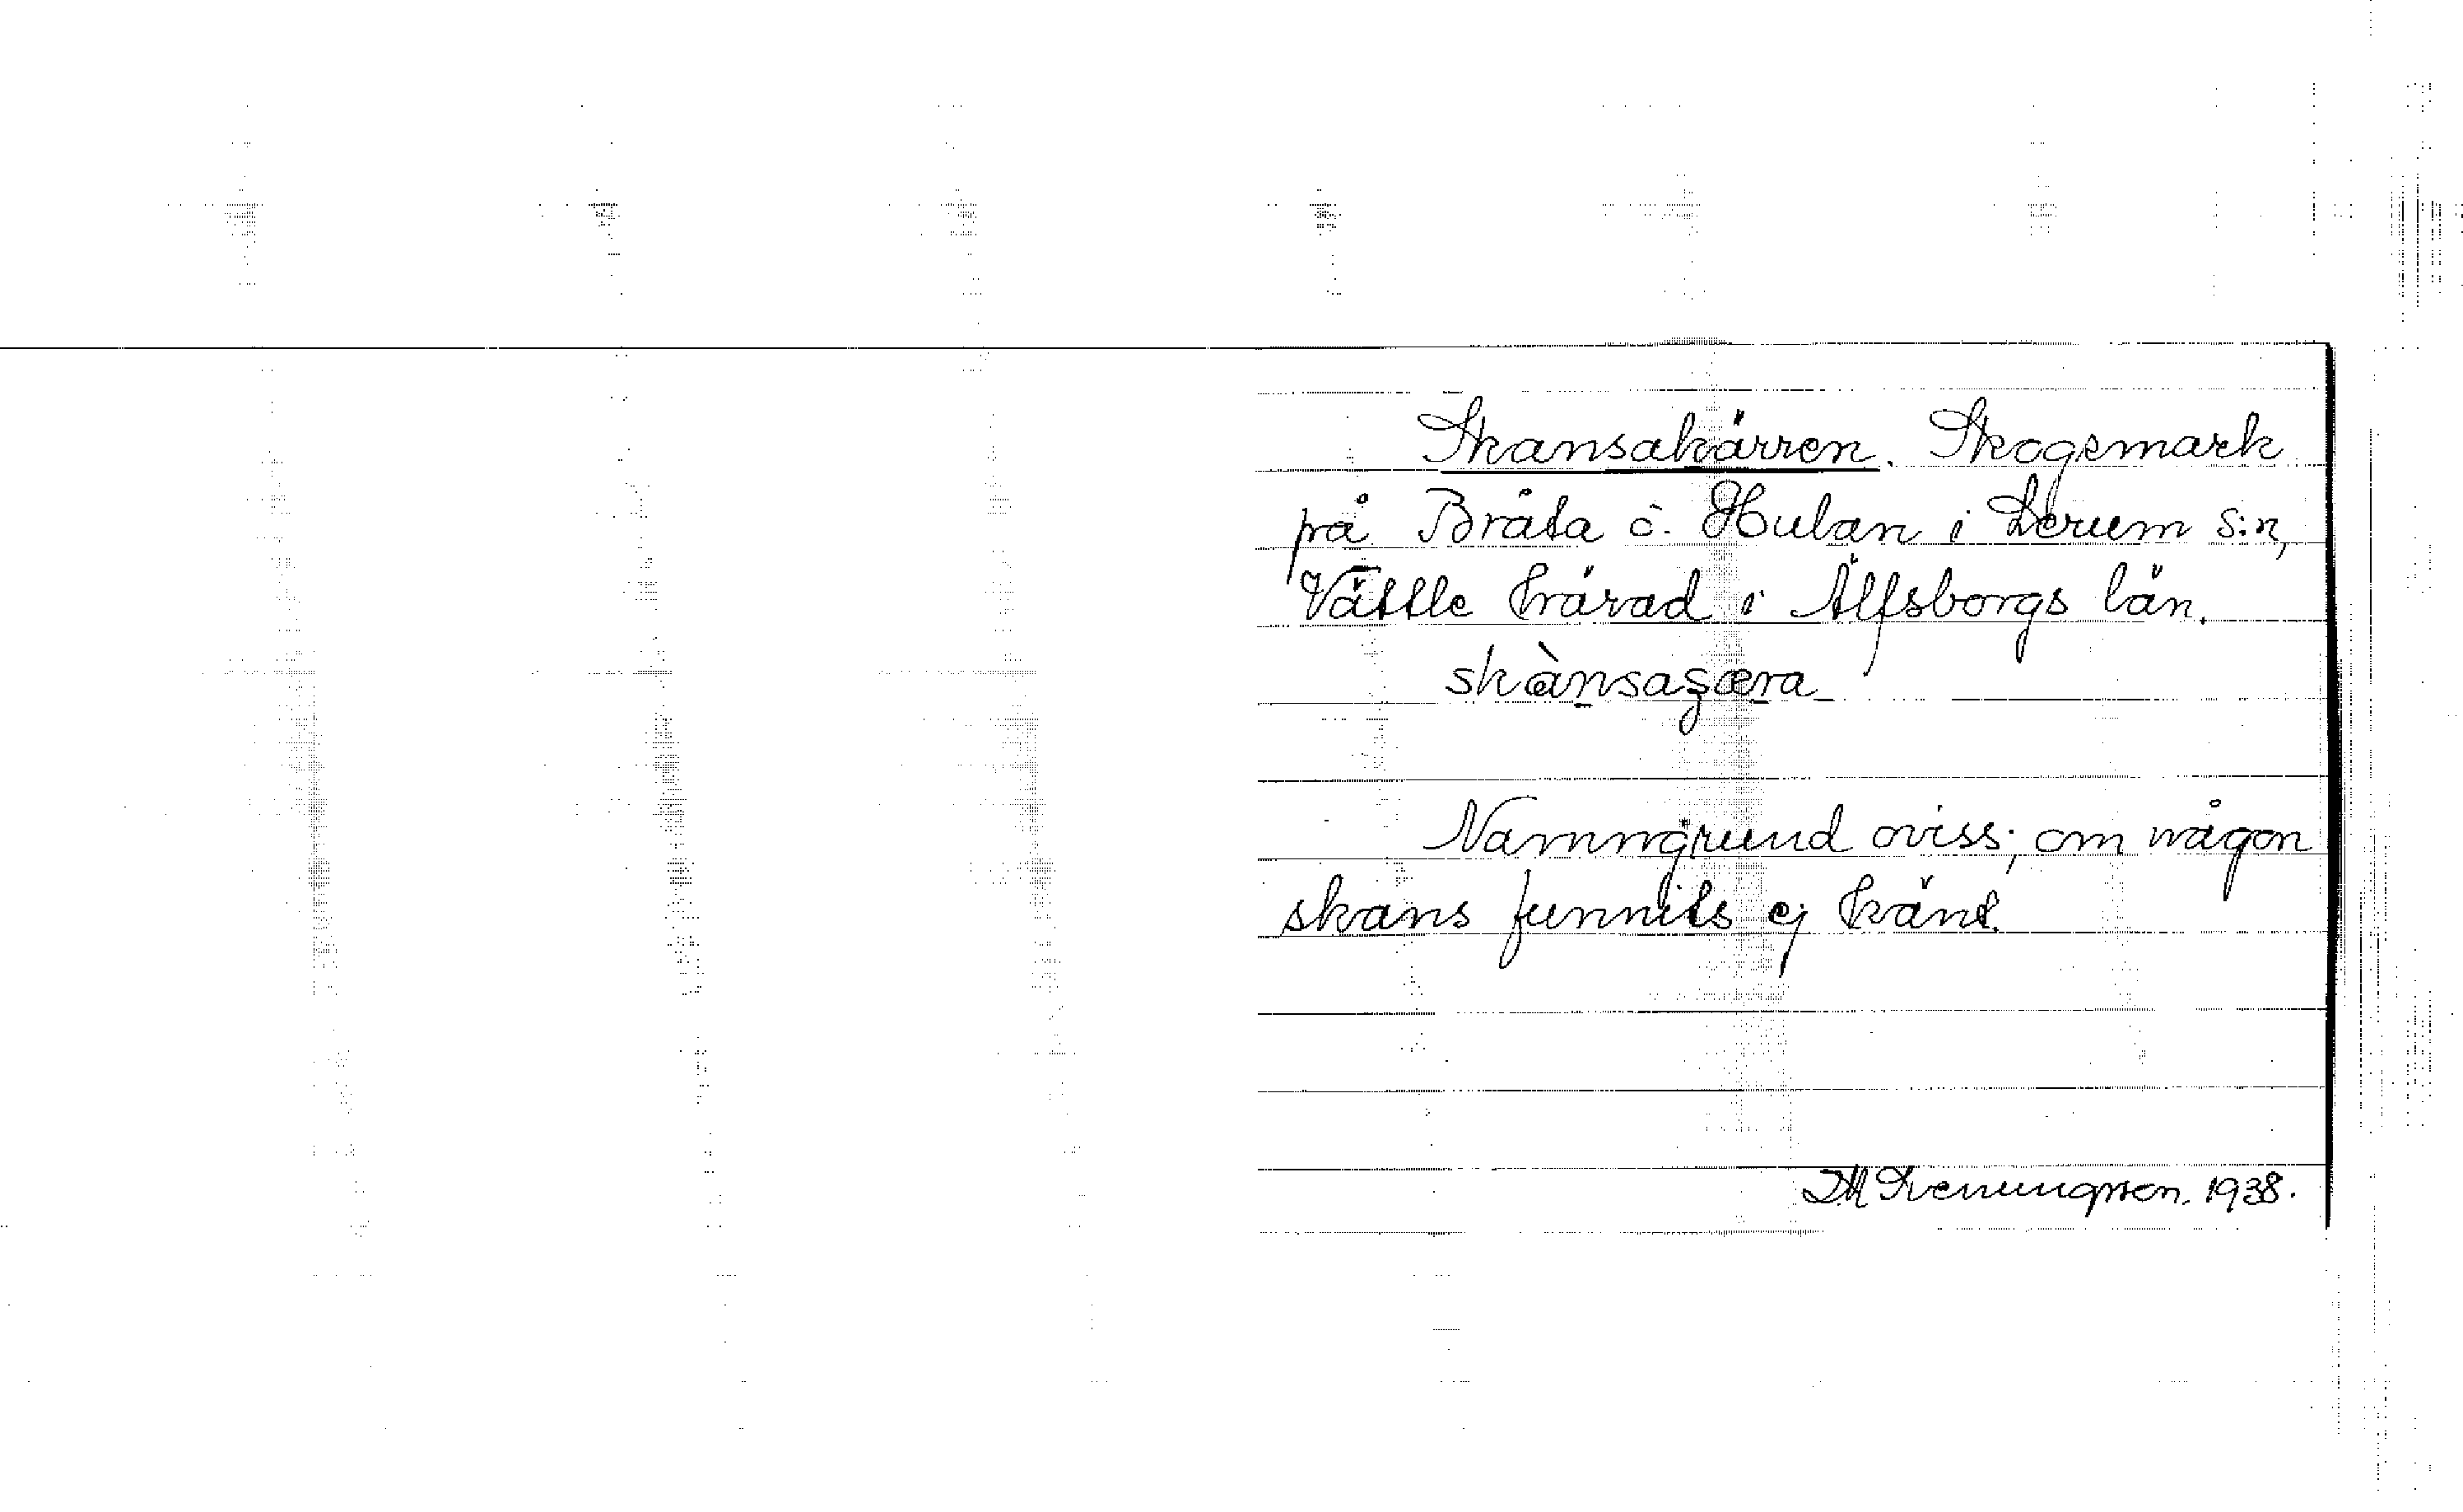 Skansakärren. Skogsmark
på Bråta o. Hulan i Lerum s:n,
Vättle härad i Älfsborgs län.
skànsaʒæra
Namngrund oviss; om någon
skans funnits ej känt.
1938.